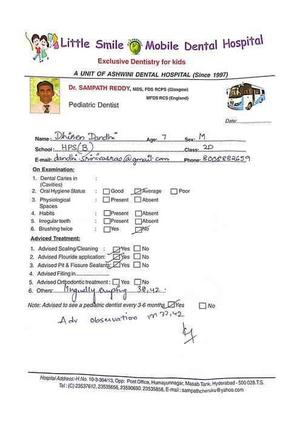 Little Smile Mobile Dental Hospital
Exclusive Dentistry for kids
A UNIT OF ASHWINI DENTAL HOSPITAL (Since 1997)
Dr. SAMPATH REDDY, MDS, FDS RCPS (Glasgow)
MFDS RCS (England)
Pediatric Dentist
Date:
Name: Dhiren Dandhi Age: 7 Sex: M
School: HPS(B) Class: 2D
E-mail: Phone: 8008882659
On Examination:
1. Dental Caries in :
(Cavities)
2. Oral Hygiene Status : Good Average Poor
3. Physiological : Present Absent
Spaces
4. Habits : Present Absent
5. Irregular teeth : Present Absent
6. Brushing twice : Yes No
Adviced Treatment:
1. Advised Scaling/Cleaning : Yes No
2. Advise Flouride application: Yes No
3. Advised Pit & Fissure Sealants: Yes No
4. Advised Filling in
5. Advised Orthodontic treatment : Yes No
6. Others: lingually erupting 32,42.
Note: Advised to see a pediatric dentist every 3-6 months Yes No
Adv observation
Hospital Address:- H.No. 10-3-304/13, Opp: Post Office, Humayunnagar, Masab Tank, Hyderabad - 500 028.T.S.